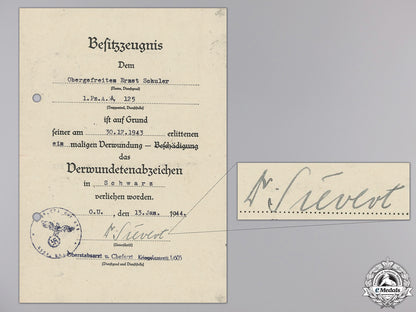 Besitzzeugnis
Dem
Obergefreiten Ernst Schuler
(Name, Dienstgrad)
1.Pz.A.A. 125
(Truppenteil, Dienststelle)
ist auf Grund
seiner am 30.12.1943 erlittenen
ein maligen Verwundung – Beschädigung
das
Verwundetenabzeichen
in Schwarz
verliehen worden.
O.U., den 13.Jan. 1944.
Dr. Sievert
(Unterschrift)
Oberstabsarzt u. Chefarzt
(Dienstgrad und Dienststelle)
Dr. Sievert